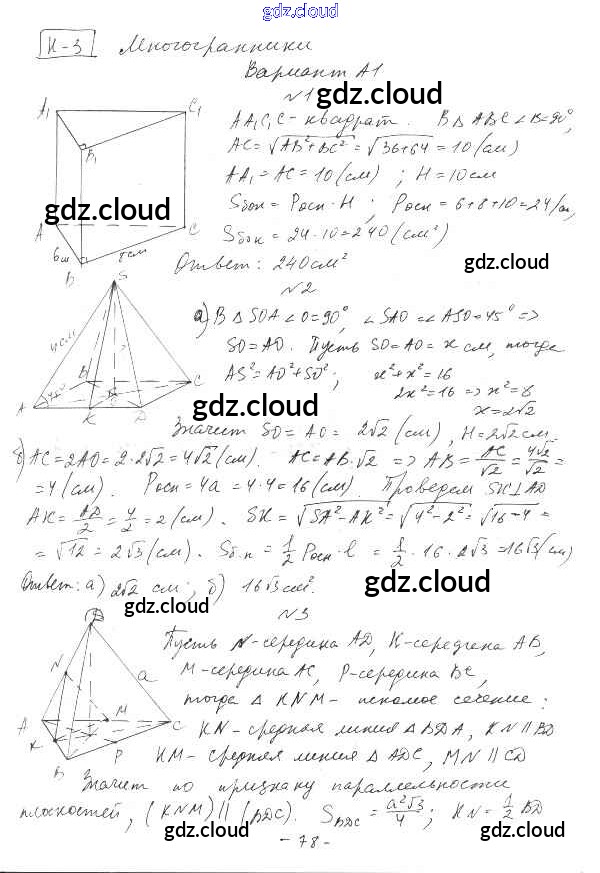 gdz.cloud
К-3 Многогранники
Вариант А1
№1
gdz.cloud
A A₁ C₁ B₁ A C B 6 см 8 см
AA₁C₁C - квадрат. В Δ ABC ∠B=90°,
AC = √AB²+BC² = √36+64 = 10 (см)
AA₁ = AC = 10 (см) ; H = 10 см
gdz.cloud
Sбок = Pосн · H ; Pосн = 6+8+10 = 24 (см)
Sбок = 24 · 10 = 240 (см²)
gdz.cloud
Ответ: 240 см²
№2
S A B C D K O 45°
а) В Δ SOA ∠O=90°, ∠SAO = ∠ASO = 45° =>
SO = AO. Пусть SO = AO = x см, тогда
AS² = AO² + SO²; x² + x² = 16
2x² = 16 => x² = 8
x = 2√2
gdz.cloud
Значит SO = AO = 2√2 (см), H = 2√2 см
б) AC = 2AO = 2·2√2 = 4√2 (см). AC = AB·√2 => AB = AC/√2 = 4√2/√2 =
= 4 (см). Pосн = 4a = 4·4 = 16 (см). Проведем SK⊥AD
gdz.cloud
gdz.cloud
AK = AD/2 = 4/2 = 2 (см). SK = √SA² - AK² = √4² - 2² = √16-4 =
= √12 = 2√3 (см). Sб.п = 1/2 Pосн · l = 1/2 · 16 · 2√3 = 16√3 (см)
Ответ: а) 2√2 см; б) 16√3 см².
gdz.cloud
gdz.cloud
№3
D N a A M C K B P
Пусть N - середина AD, K - середина AB,
M - середина AC, P - середина BC,
gdz.cloud
gdz.cloud
тогда Δ KNM - искомое сечение:
KN - средняя линия Δ BDA, KN ∥ BD
KM - средняя линия Δ ADC, MN ∥ CD
gdz.cloud
gdz.cloud
Значит по признаку параллельности
плоскостей, (KNM) ∥ (BDC). S BDC = a²√3/4 ; KN = 1/2 BD
gdz.cloud
gdz.cloud
- 78 -